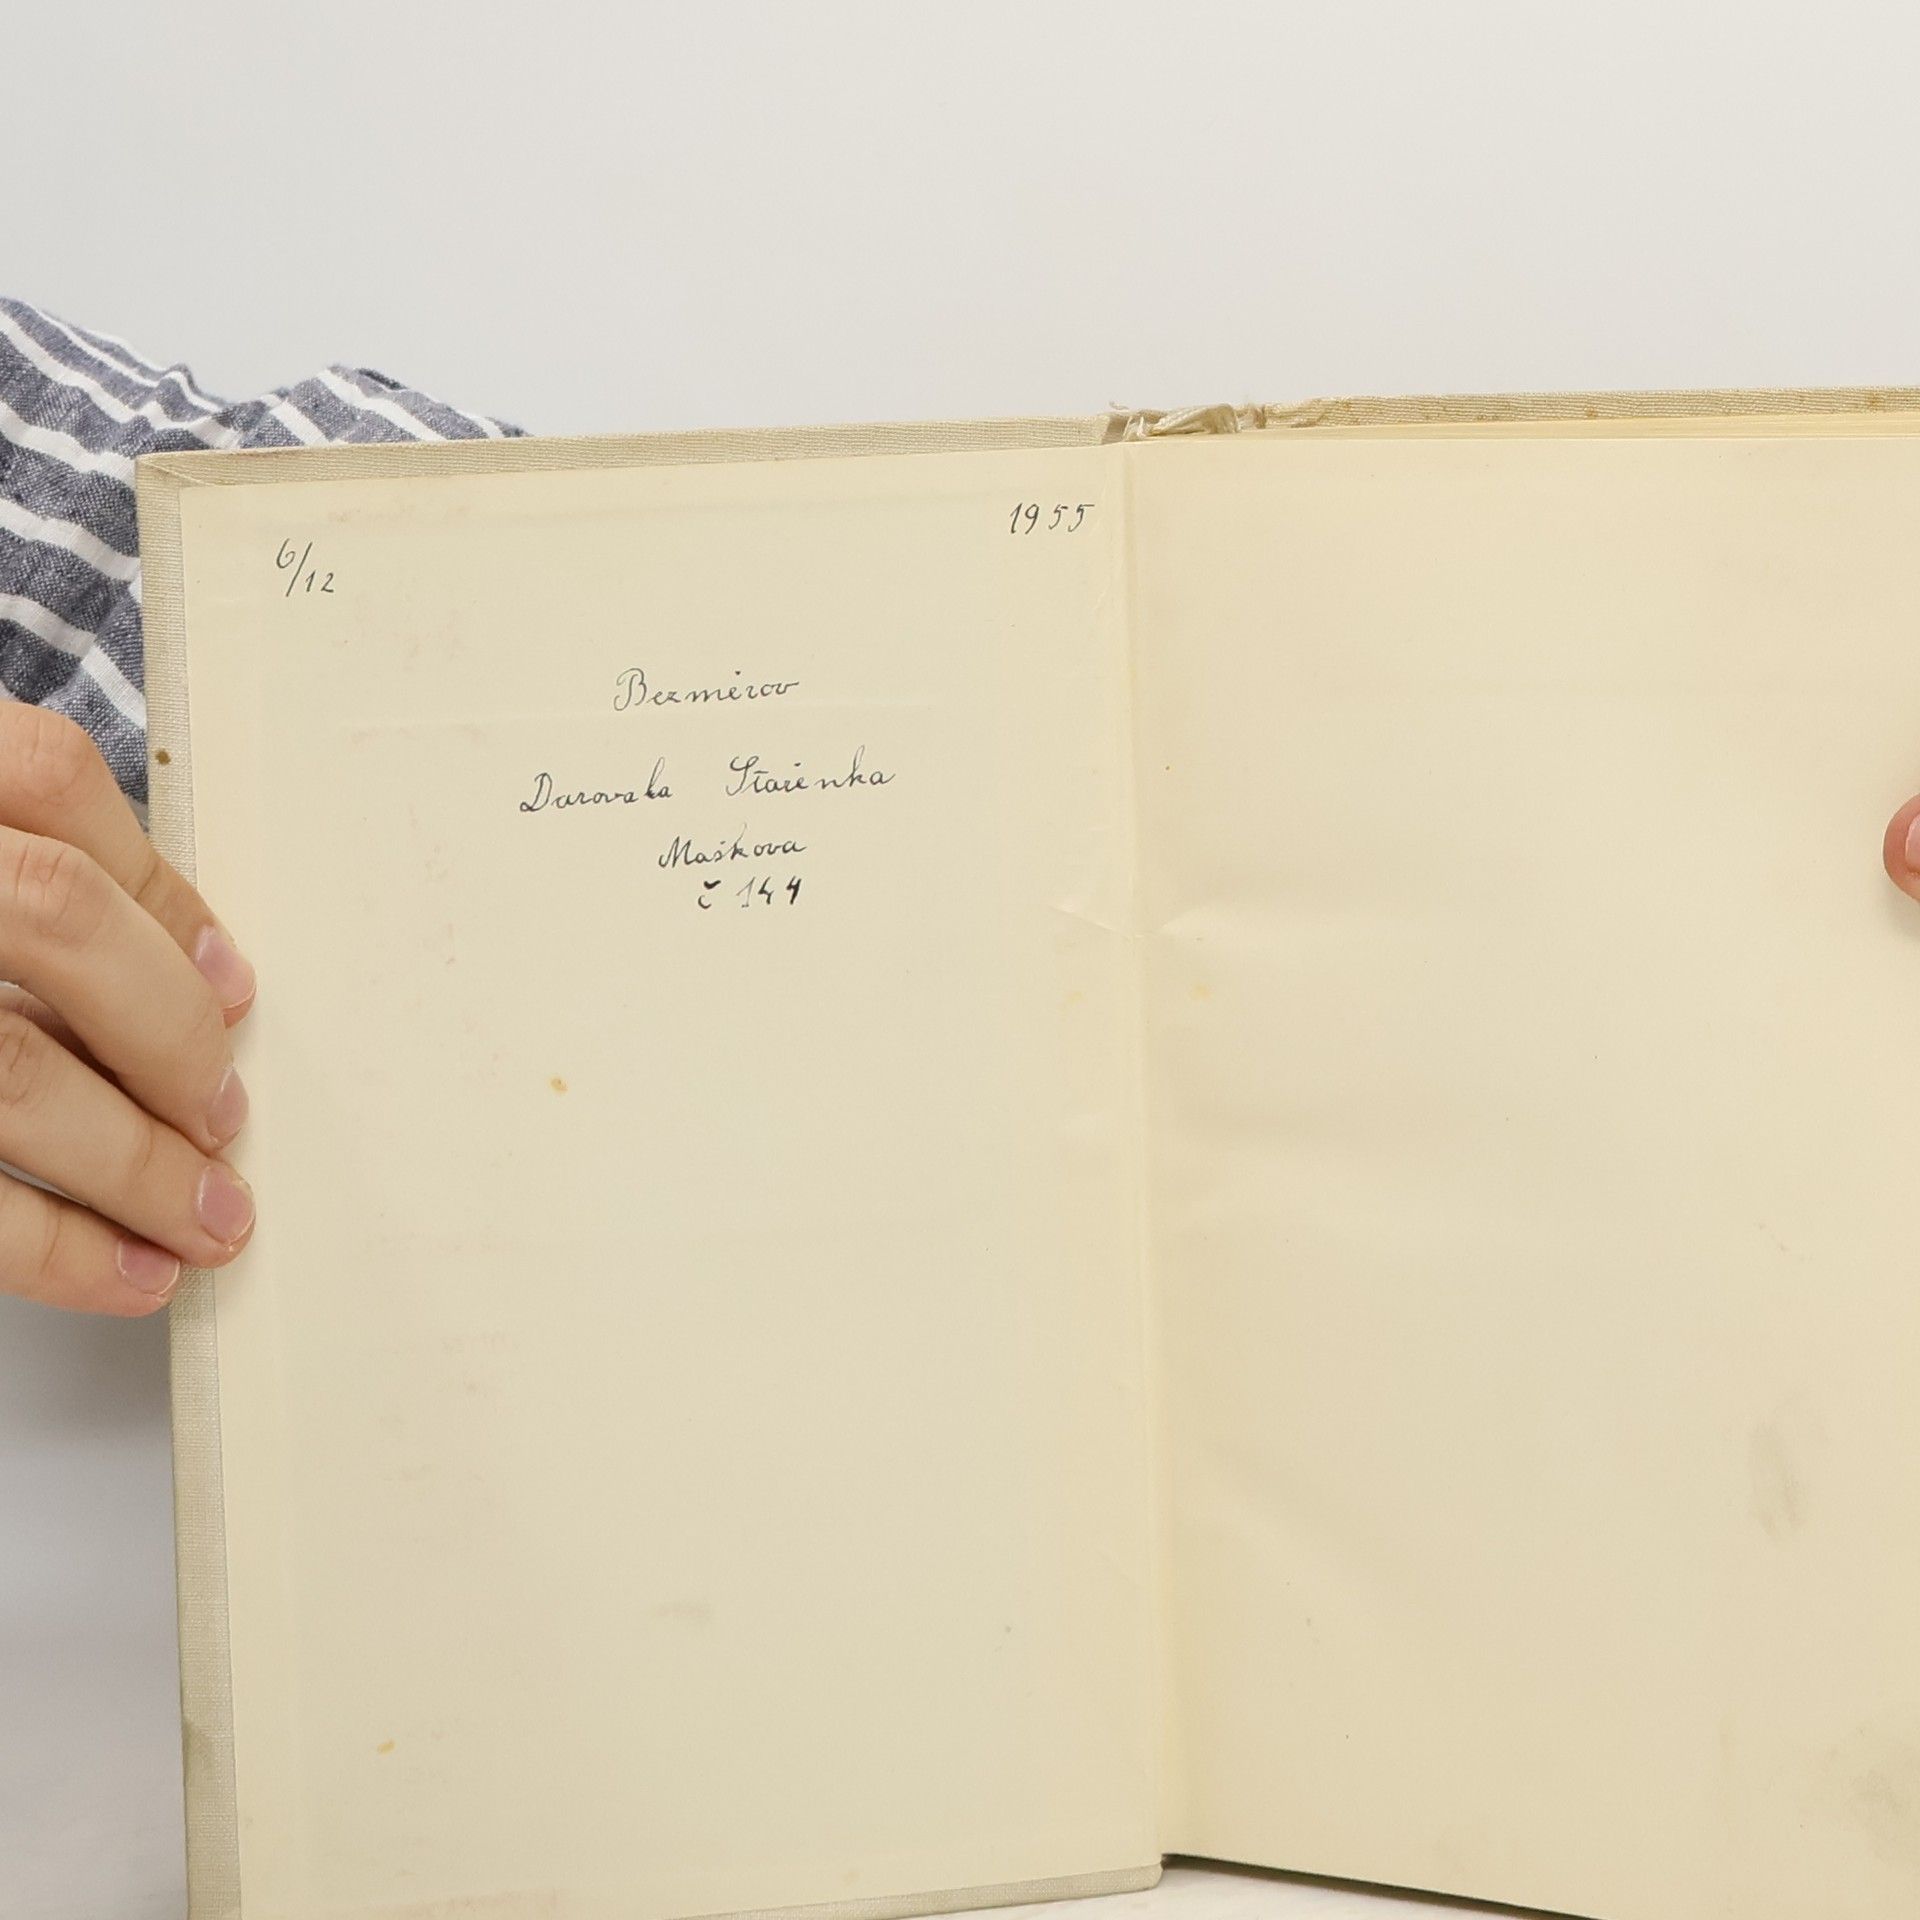 6/12 1955
Bezměrov
Darovala Stařenka
Maškova
č 144